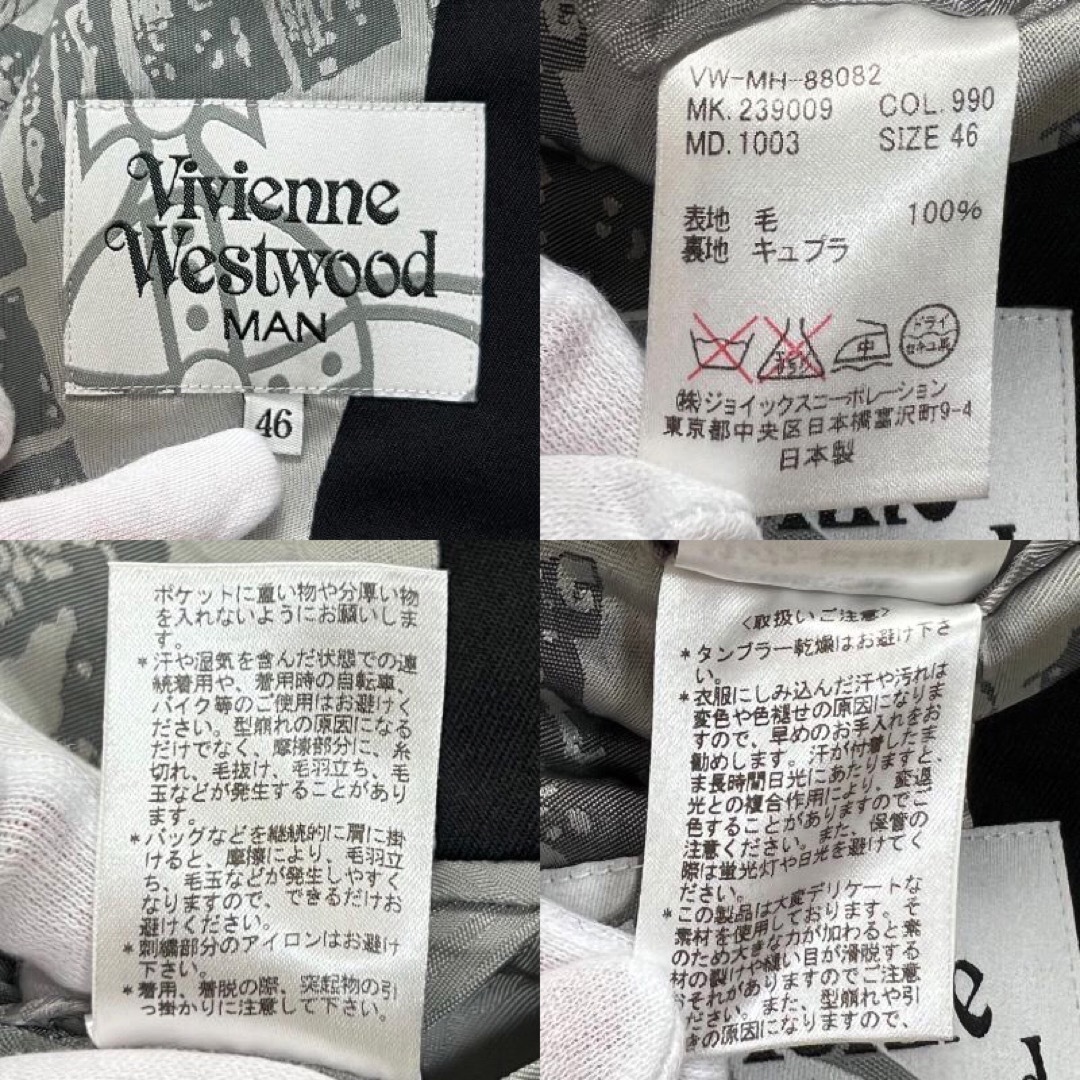 Vivienne
Westwood
MAN
46
VW-MH-88082
MK. 239009 COL. 990
MD. 1003 SIZE 46
表地 毛 100%
裏地 キュプラ
中
ドライ
セキユ系
㈱ジョイックスコーポレーション
東京都中央区日本橋富沢町9-4
日本製
ポケットに重い物や分厚い物
を入れないようにお願いしま
す。
*汗や湿気を含んだ状態での連
続着用や、着用時の自転車、
バイク等のご使用はお避けく
ださい。型崩れの原因になる
だけでなく、摩擦部分に、糸
切れ、毛抜け、毛羽立ち、毛
玉などが発生することがあり
ます。
*バッグなどを継続的に肩に掛
けると、摩擦により、毛羽立
ち、毛玉などが発生しやすく
なりますので、できるだけお
避けください。
*刺繍部分のアイロンはお避け
下さい。
*着用、着脱の際、突起物の引
っ掛かりに注意して下さい。
<取扱いご注意>
*タンブラー乾燥はお避け下さ
い。
*衣服にしみ込んだ汗や汚れは
変色や色褪せの原因になりま
すので、早めのお手入れをお
勧めします。汗が付着したま
ま長時間日光にあたりますと、
光との複合作用により、変退
色することがありますのでご
注意ください。また、保管の
際は蛍光灯や日光を避けてく
ださい。
*この製品は大変デリケートな
素材を使用しております。そ
のため大きな力が加わると素
材の裂けや縫い目が滑脱する
おそれがありますのでご注意
ください。また、型崩れや引
きの原因になりますので、